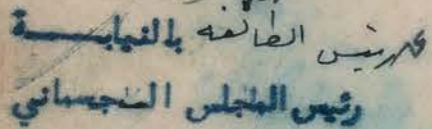 عن رئيس الطائفة بالنيابــــــة
رئيس المجلس الجسماني